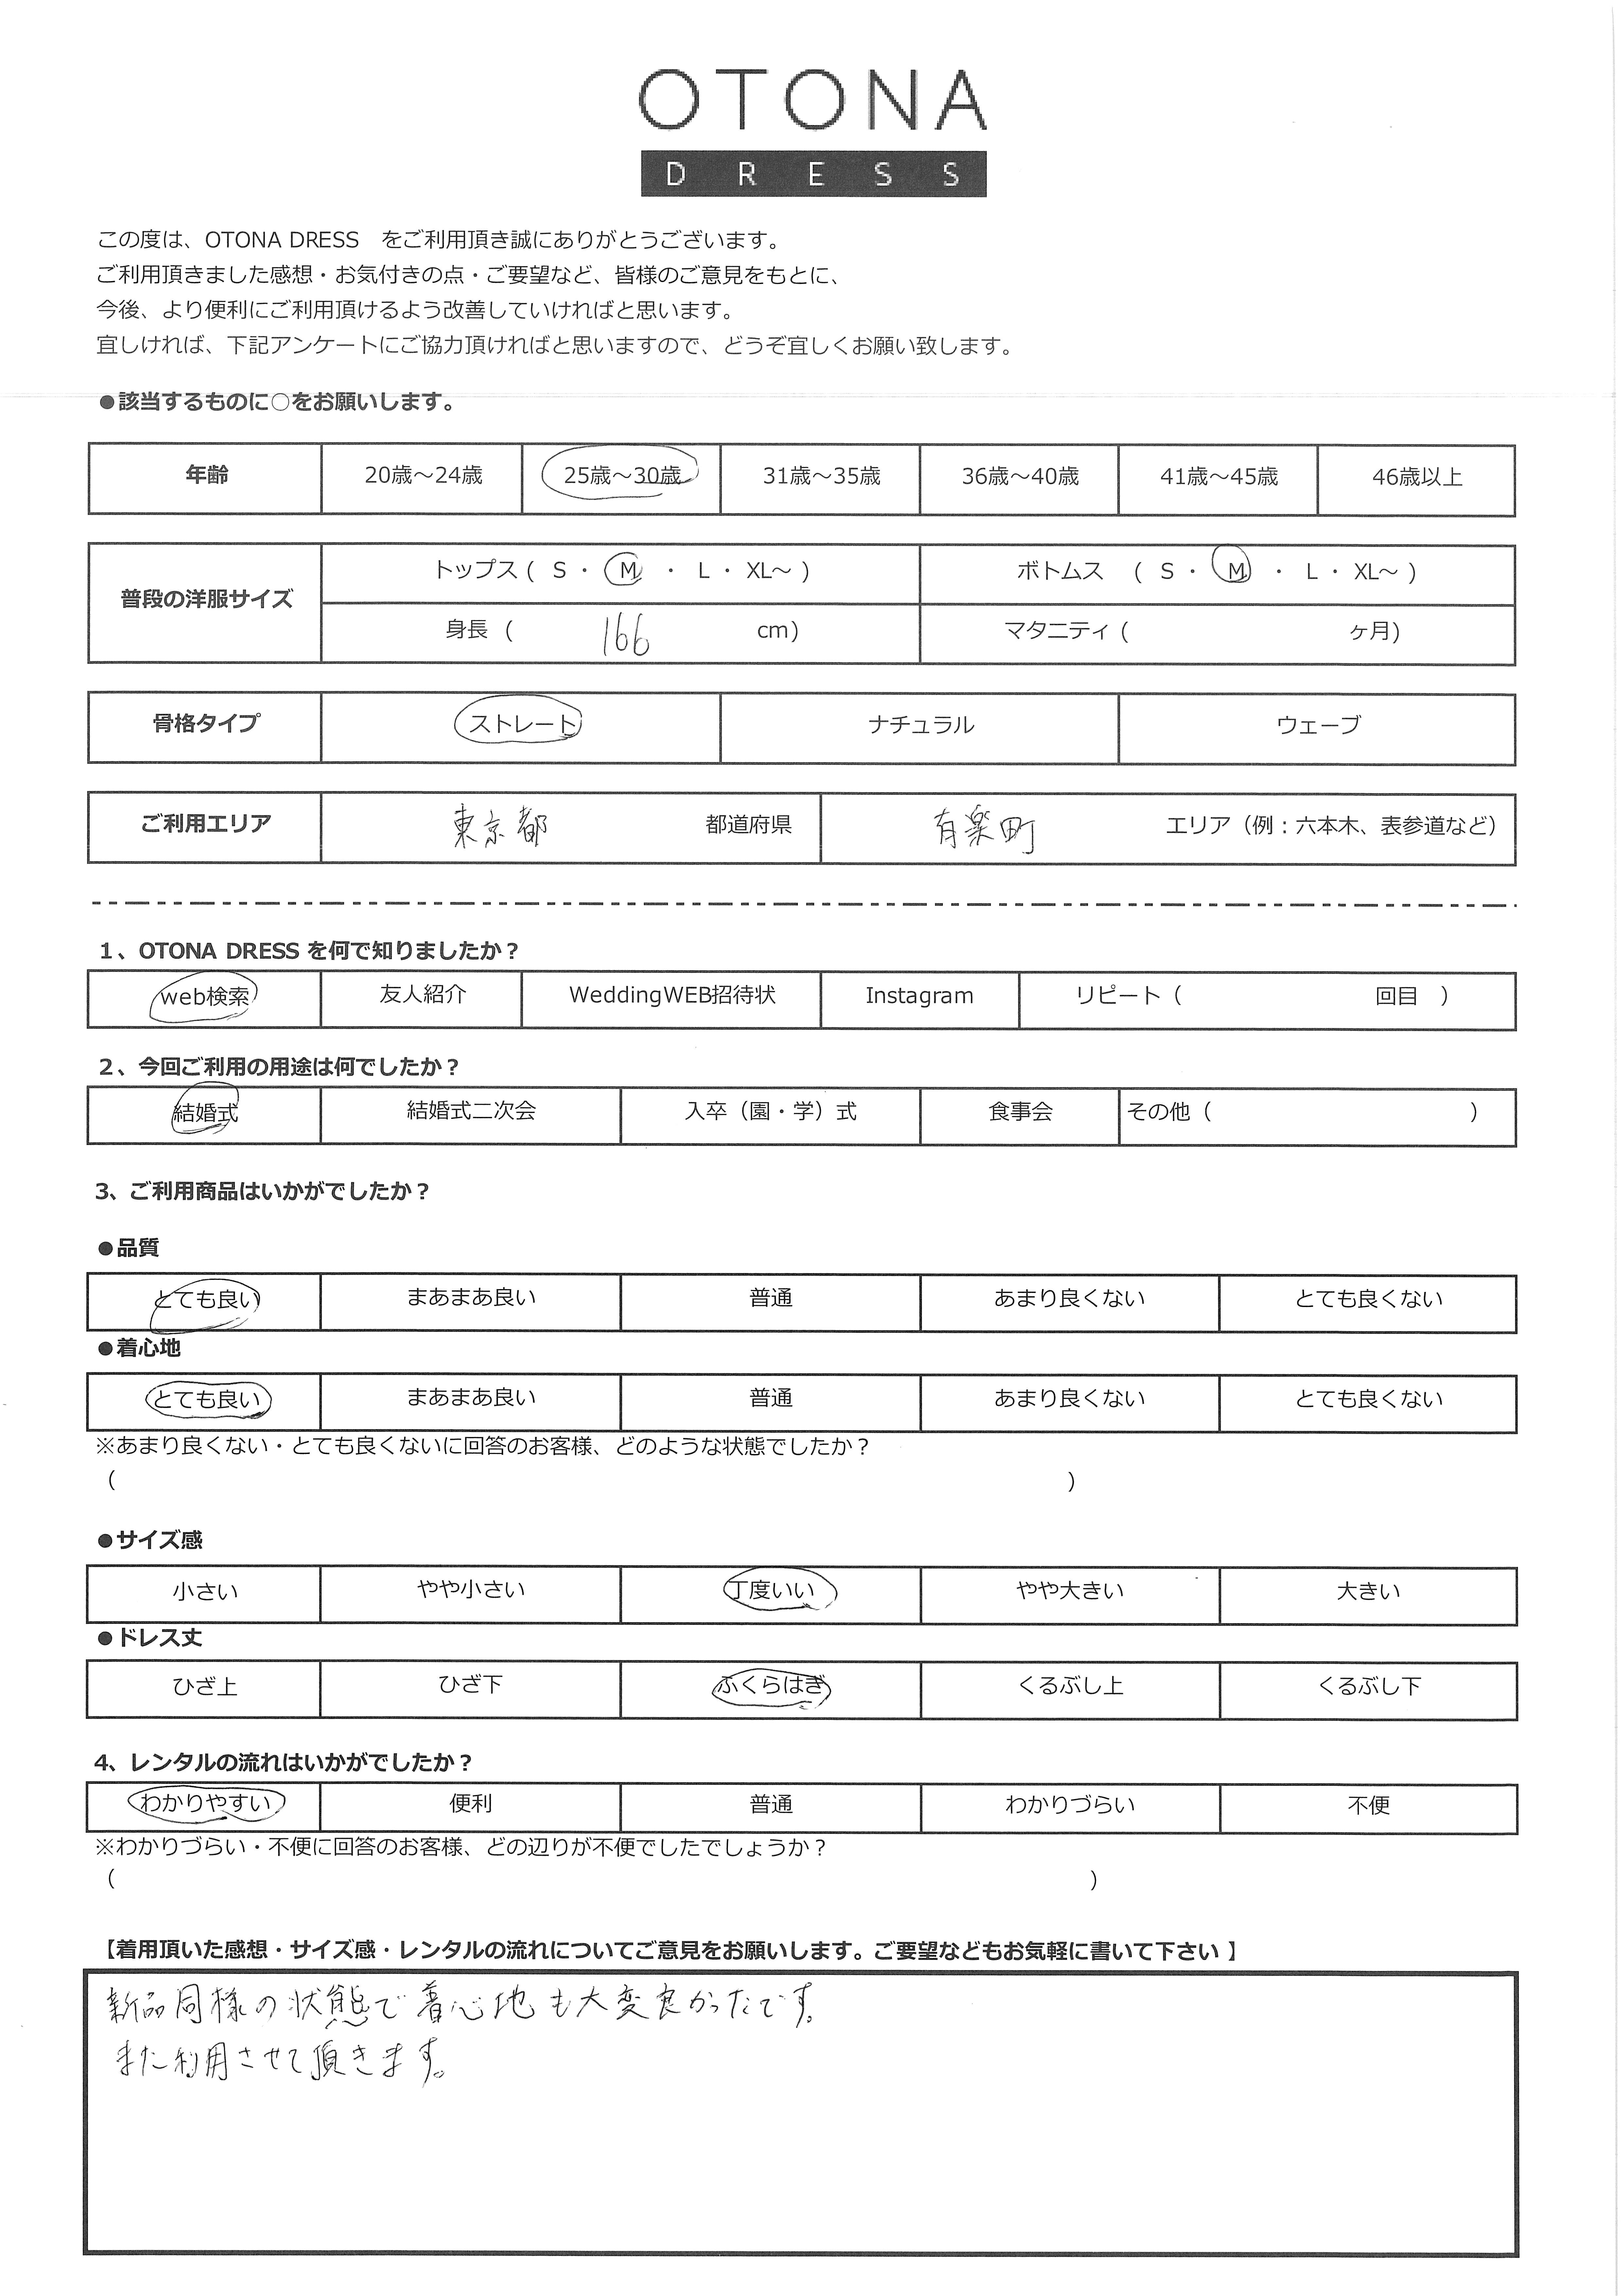 OTONA
DRESS
この度は、OTONA DRESS をご利用頂き誠にありがとうございます。
ご利用頂きました感想・お気付きの点・ご要望など、皆様のご意見をもとに、
今後、より便利にご利用頂けるよう改善していければと思います。
宜しければ、下記アンケートにご協力頂ければと思いますので、どうぞ宜しくお願い致します。
●該当するものに○をお願いします。
年齢 20歳～24歳 25歳～30歳 31歳～35歳 36歳～40歳 41歳～45歳 46歳以上
普段の洋服サイズ トップス ( S ・ M ・ L ・ XL～ ) ボトムス ( S ・ M ・ L ・ XL～ )
身長 ( 166 cm) マタニティ ( ヶ月)
骨格タイプ ストレート ナチュラル ウェーブ
ご利用エリア 東京都 都道府県 有楽町 エリア（例：六本木、表参道など）
1、OTONA DRESS を何で知りましたか？
web検索 友人紹介 WeddingWEB招待状 Instagram リピート（ 回目 ）
2、今回ご利用の用途は何でしたか？
結婚式 結婚式二次会 入卒（園・学）式 食事会 その他（ ）
3、ご利用商品はいかがでしたか？
●品質
とても良い まあまあ良い 普通 あまり良くない とても良くない
●着心地
とても良い まあまあ良い 普通 あまり良くない とても良くない
※あまり良くない・とても良くないに回答のお客様、どのような状態でしたか？
( )
●サイズ感
小さい やや小さい 丁度いい やや大きい 大きい
●ドレス丈
ひざ上 ひざ下 ふくらはぎ くるぶし上 くるぶし下
4、レンタルの流れはいかがでしたか？
わかりやすい 便利 普通 わかりづらい 不便
※わかりづらい・不便に回答のお客様、どの辺りが不便でしたでしょうか？
( )
【着用頂いた感想・サイズ感・レンタルの流れについてご意見をお願いします。ご要望などもお気軽に書いて下さい 】
新品同様の状態で着心地も大変良かったです。
また利用させて頂きます。